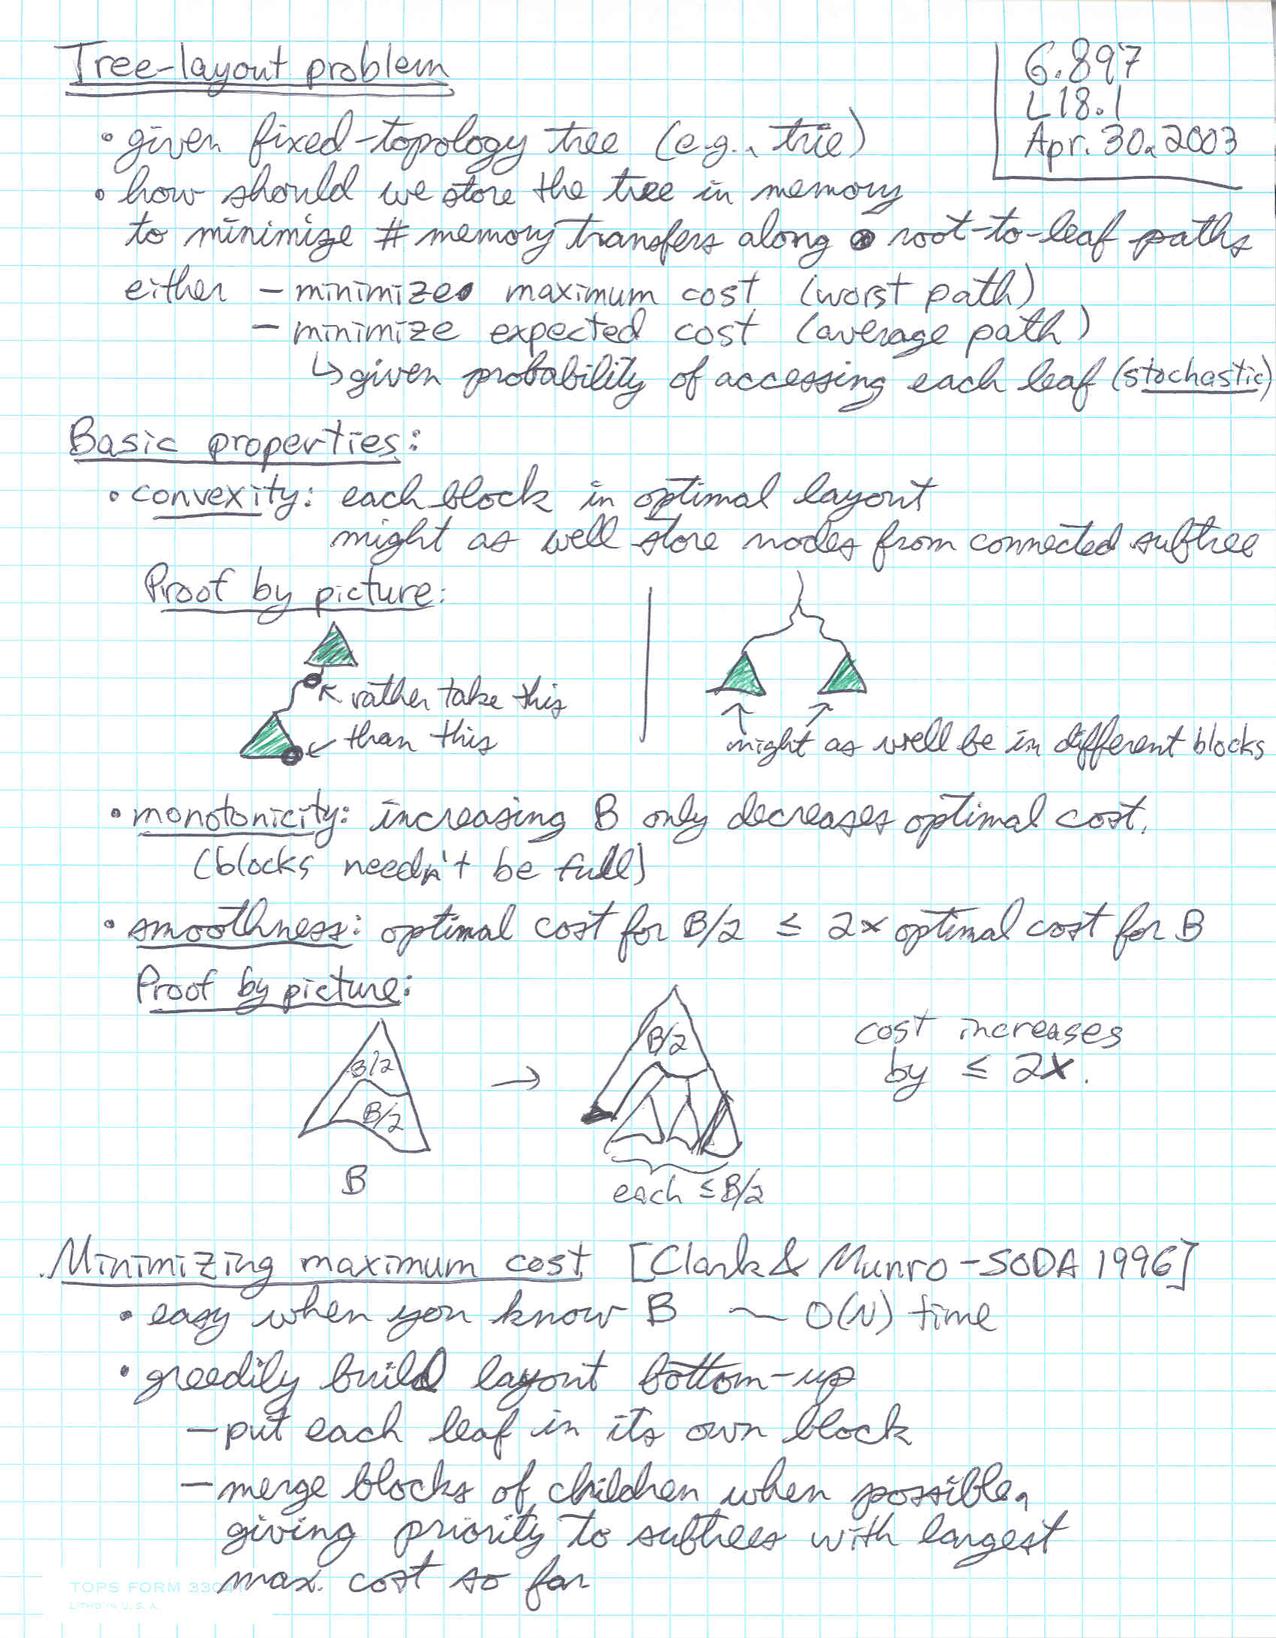 Tree-layout problem
6.897
L18.1
Apr. 30, 2003
• given fixed-topology tree (e.g., trie)
• how should we store the tree in memory
to minimize # memory transfers along root-to-leaf paths
either – minimize maximum cost (worst path)
– minimize expected cost (average path)
↳ given probability of accessing each leaf (stochastic)
Basic properties:
• convexity: each block in optimal layout
might as well store nodes from connected subtree
Proof by picture:
rather take this
than this
might as well be in different blocks
• monotonicity: increasing B only decreases optimal cost.
(blocks needn't be full)
• smoothness: optimal cost for B/2 ≤ 2x optimal cost for B
Proof by picture:
B/2
B/2
B
→
B/2
each ≤ B/2
cost increases
by ≤ 2x.
Minimizing maximum cost [Clark & Munro – SODA 1996]
• easy when you know B ~ O(N) time
• greedily build layout bottom-up
– put each leaf in its own block
– merge blocks of children when possible,
giving priority to subtrees with largest
max. cost so far
TOPS FORM 330
LITHO IN U.S.A.